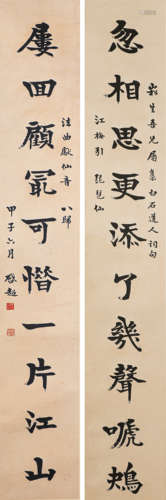 忽相思更添了幾聲嗁鴂
崧生吾兄屬集白石道人詞句
江梅引 琵琶仙
屢回顧最可惜一片江山
法曲獻仙音 八歸
甲子六月 啟超